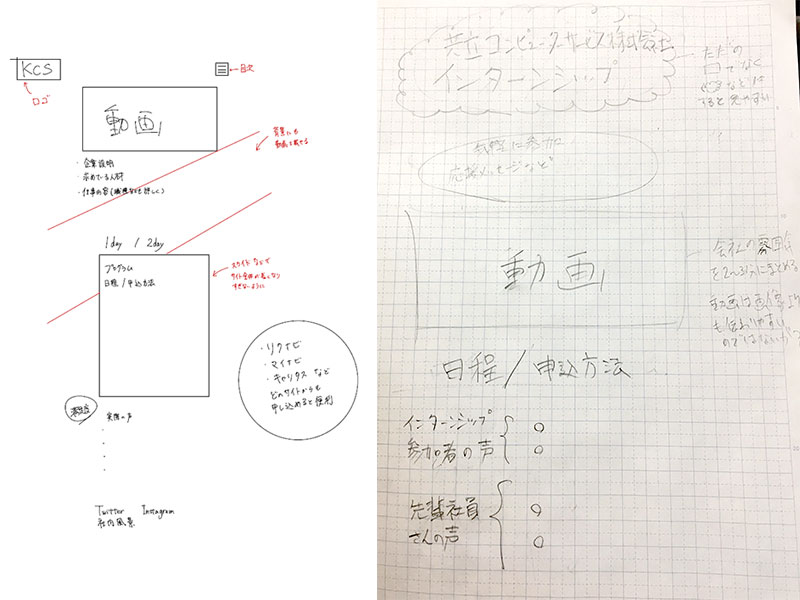 KCS
ロゴ
目次
動画
背景にも
動画を載せる
・企業説明
・求めている人材
・仕事内容(職種なども詳しく)
1day / 2day
プログラム
日程/申込方法
スライドなどで
サイト全体が長くなり
すぎないように
・リクナビ
・マイナビ
・キャリタス など
どのサイトからも
申し込めると便利
実際の声
Twitter Instagram
社内風景
共立コンピューターサービス株式会社
インターンシップ
ただの
でなく
などに
すると見やすい
気軽に参加
応援メッセージなど
動画
会社の雰囲気
を2〜3分にまとめる
動画は画像より
も伝わりやすい
のではないか?
日程/申込方法
インターンシップ
参加者の声
先輩社員
さんの声